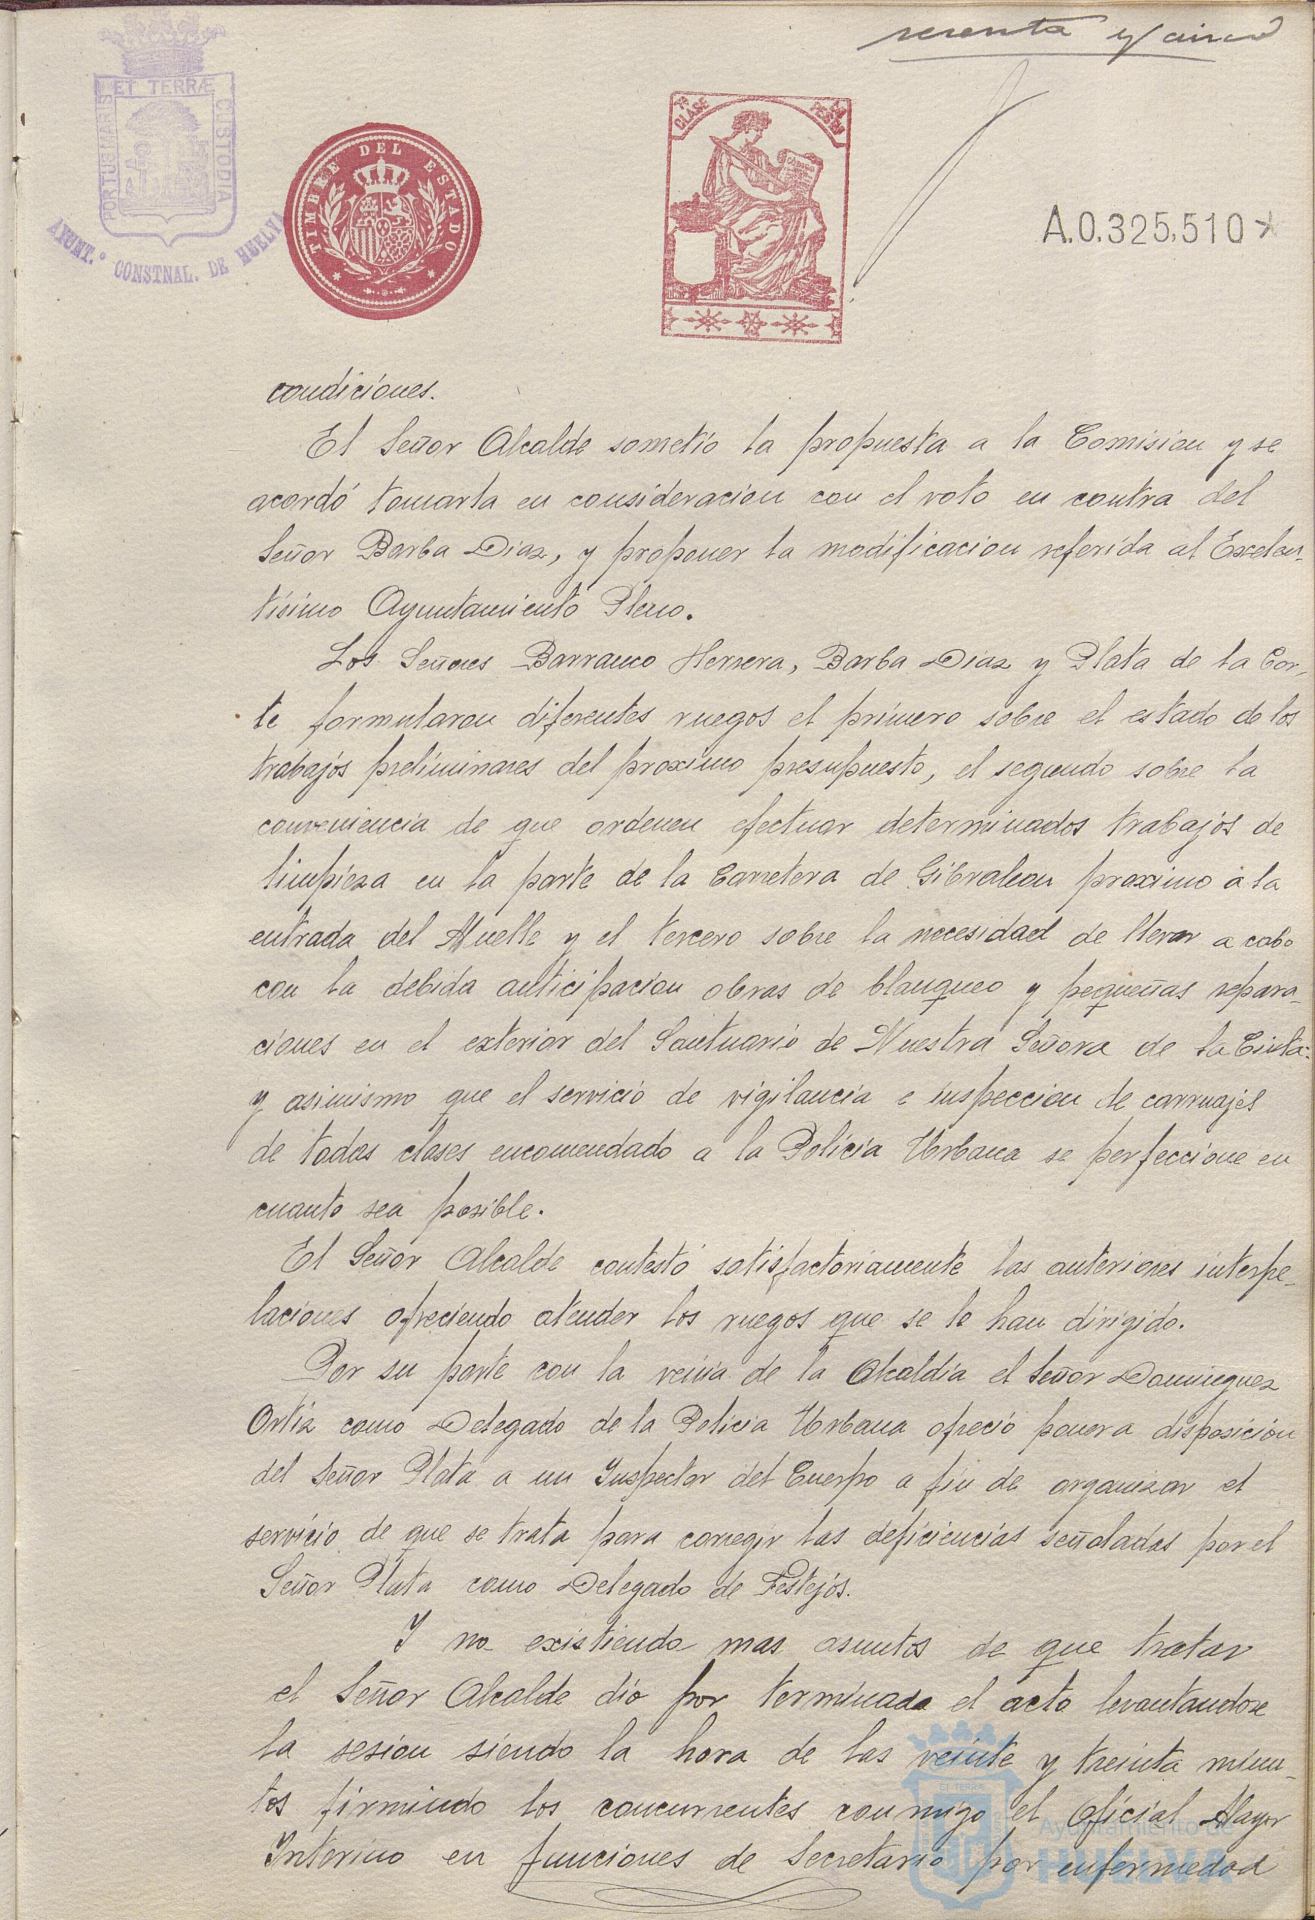 sesenta y cinco
PORTUS MARIS ET TERRÆ CUSTODIA
AYUNT.º CONSTNAL. DE HUELVA
TIMBRE DEL ESTADO
7ª CLASE
PESETAS
A.0,325,510*
condiciones.
El Señor Alcalde sometió la propuesta a la Comision y se
acordó tomarla en consideracion con el voto en contra del
Señor Barba Diaz, y proponer la modificacion referida al Excelen-
tísimo Ayuntamiento Pleno.
Los Señores Barranco Herrera, Barba Diaz y Plata de la Cor-
te formularon diferentes ruegos el primero sobre el estado de los
trabajos preliminares del proximo presupuesto, el segundo sobre la
conveniencia de que ordenen efectuar determinados trabajos de
limpieza en la parte de la Carretera de Gibraleon proximo a la
entrada del Muelle y el tercero sobre la necesidad de llevar a cabo
con la debida anticipacion obras de blanqueo y pequeñas repara-
ciones en el exterior del Santuario de Nuestra Señora de la Cinta
y asimismo que el servicio de vigilancia e inspeccion de carruajes
de todas clases encomendado a la Policia Urbana se perfeccione en
cuanto sea posible.
El Señor Alcalde contestó satisfactoriamente las anteriores interpe-
laciones ofreciendo atender los ruegos que se le han dirigido.
Por su parte con la venia de la Alcaldia el Señor Dominguez
Ortiz como Delegado de la Policia Urbana ofreció poner a disposición
del Señor Plata a un Inspector del Cuerpo a fin de organizar el
servicio de que se trata para corregir las deficiencias señaladas por el
Señor Plata como Delegado de Festejos.
Y no existiendo mas asuntos de que tratar
el Señor Alcalde dio por terminada el acto levantandose
la sesion siendo la hora de las veinte y treinta minu-
tos firmando los concurrentes conmigo el Oficial Mayor
Interino en funciones de Secretario por enfermedad
Ayuntamiento de
HUELVA